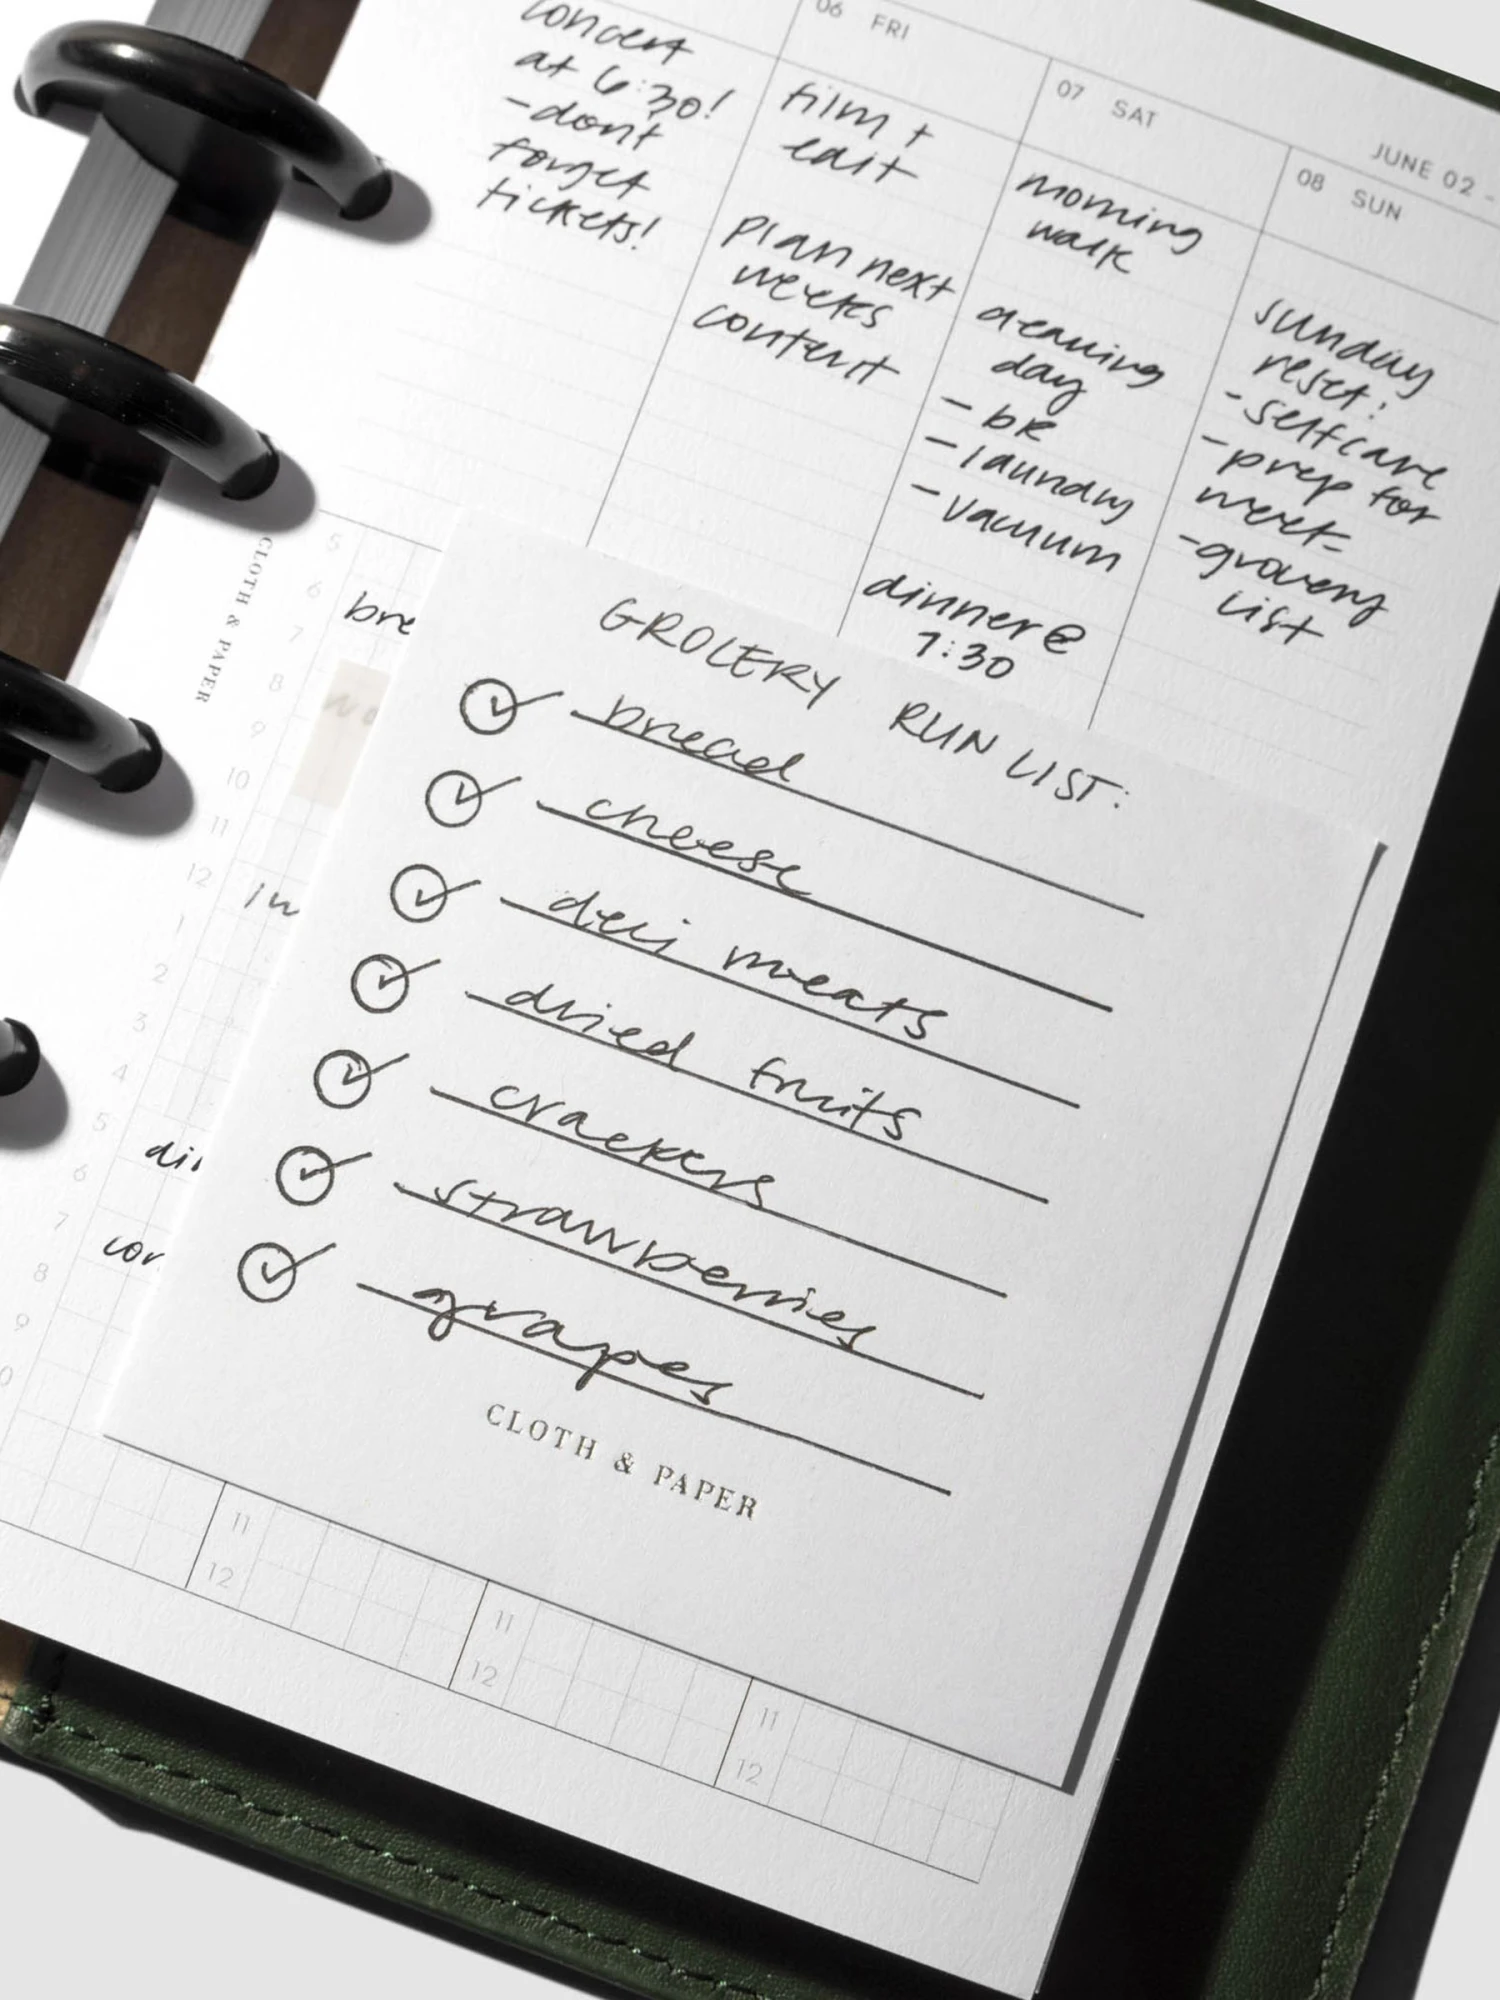 concert
at 6:30!
-don't
forget
tickets!
06 FRI
film +
edit
plan next
weeks
content
07 SAT
morning
walk
cleaning
day
- br
- laundry
- vacuum
dinner @
7:30
JUNE 02 -
08 SUN
sunday
reset:
- selfcare
- prep for
week
- grocery
list
CLOTH & PAPER
5
6
7
8
9
10
11
12
1
2
3
4
5
6
7
8
9
GROCERY RUN LIST:
bread
cheese
deli meats
dried fruits
crackers
strawberries
grapes
CLOTH & PAPER
11
12
11
12
11
12